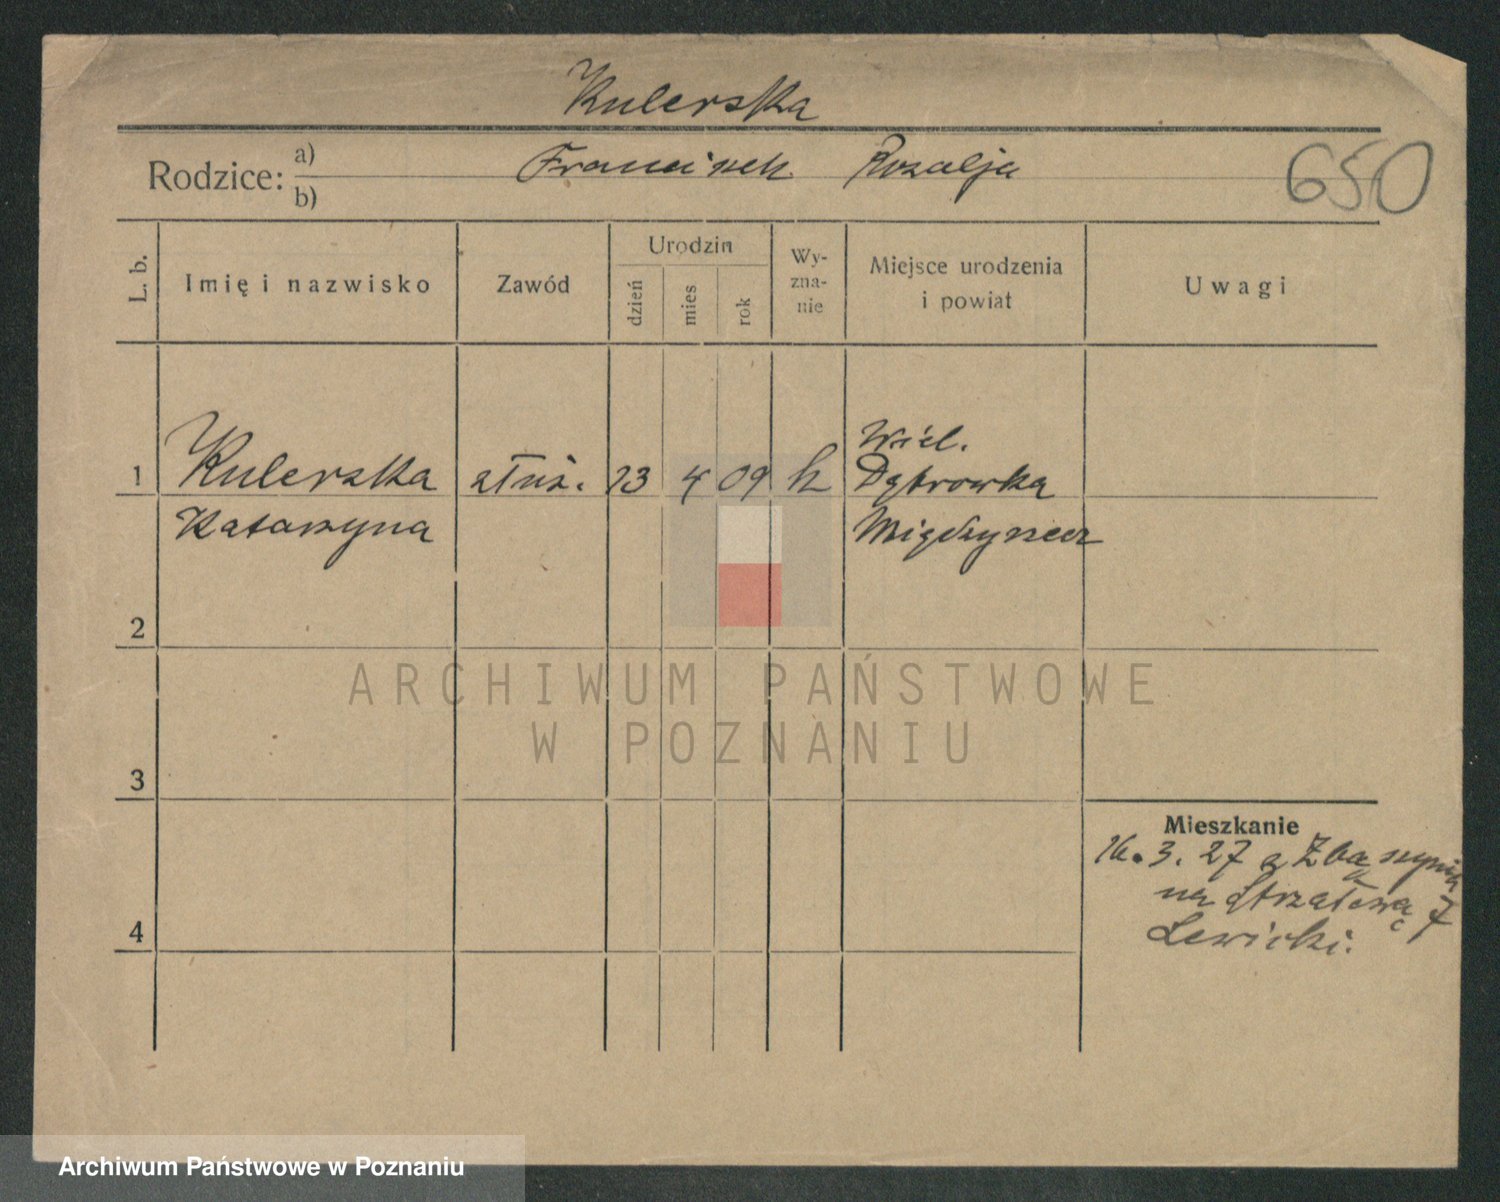 Kulerska
Rodzice: a) Franciszek Rozalja
b)
650
L. b.
Imię i nazwisko
Zawód
Urodzin
dzień
mies
rok
Wy-
zna-
nie
Miejsce urodzenia
i powiat
Uwagi
1 Kulerska służ. 23 4 09 k Wiel.
Dąbrowka
Katarzyna Międzyrzecz
2
3
4
Mieszkanie
16. 3. 27 z Zbąszynia
na Strzałową 7
Lewicki.
ARCHIWUM PAŃSTWOWE
W POZNANIU
Archiwum Państwowe w Poznaniu